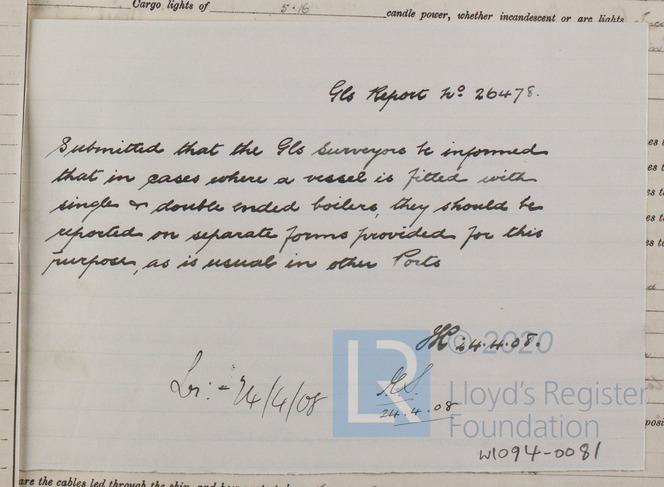 Cargo lights of 5-16 candle power, whether incandescent or arc lights
Gls Report No 26478.
Submitted that the Gls Surveyors be informed
that in cases where a vessel is fitted with
single & double ended boilers, they should be
reported on separate forms provided for this
purpose, as is usual in other Ports
24.4.08.
© 2020
24/4/08
24.4.08
LR
Lloyd's Register
Foundation
W1094-0081
are the cables led through the ship, and how